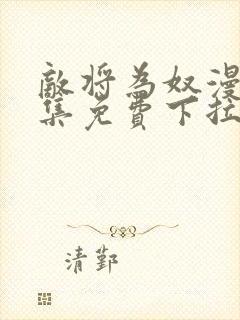 敵将為奴漫
集免費下拉
清鄞